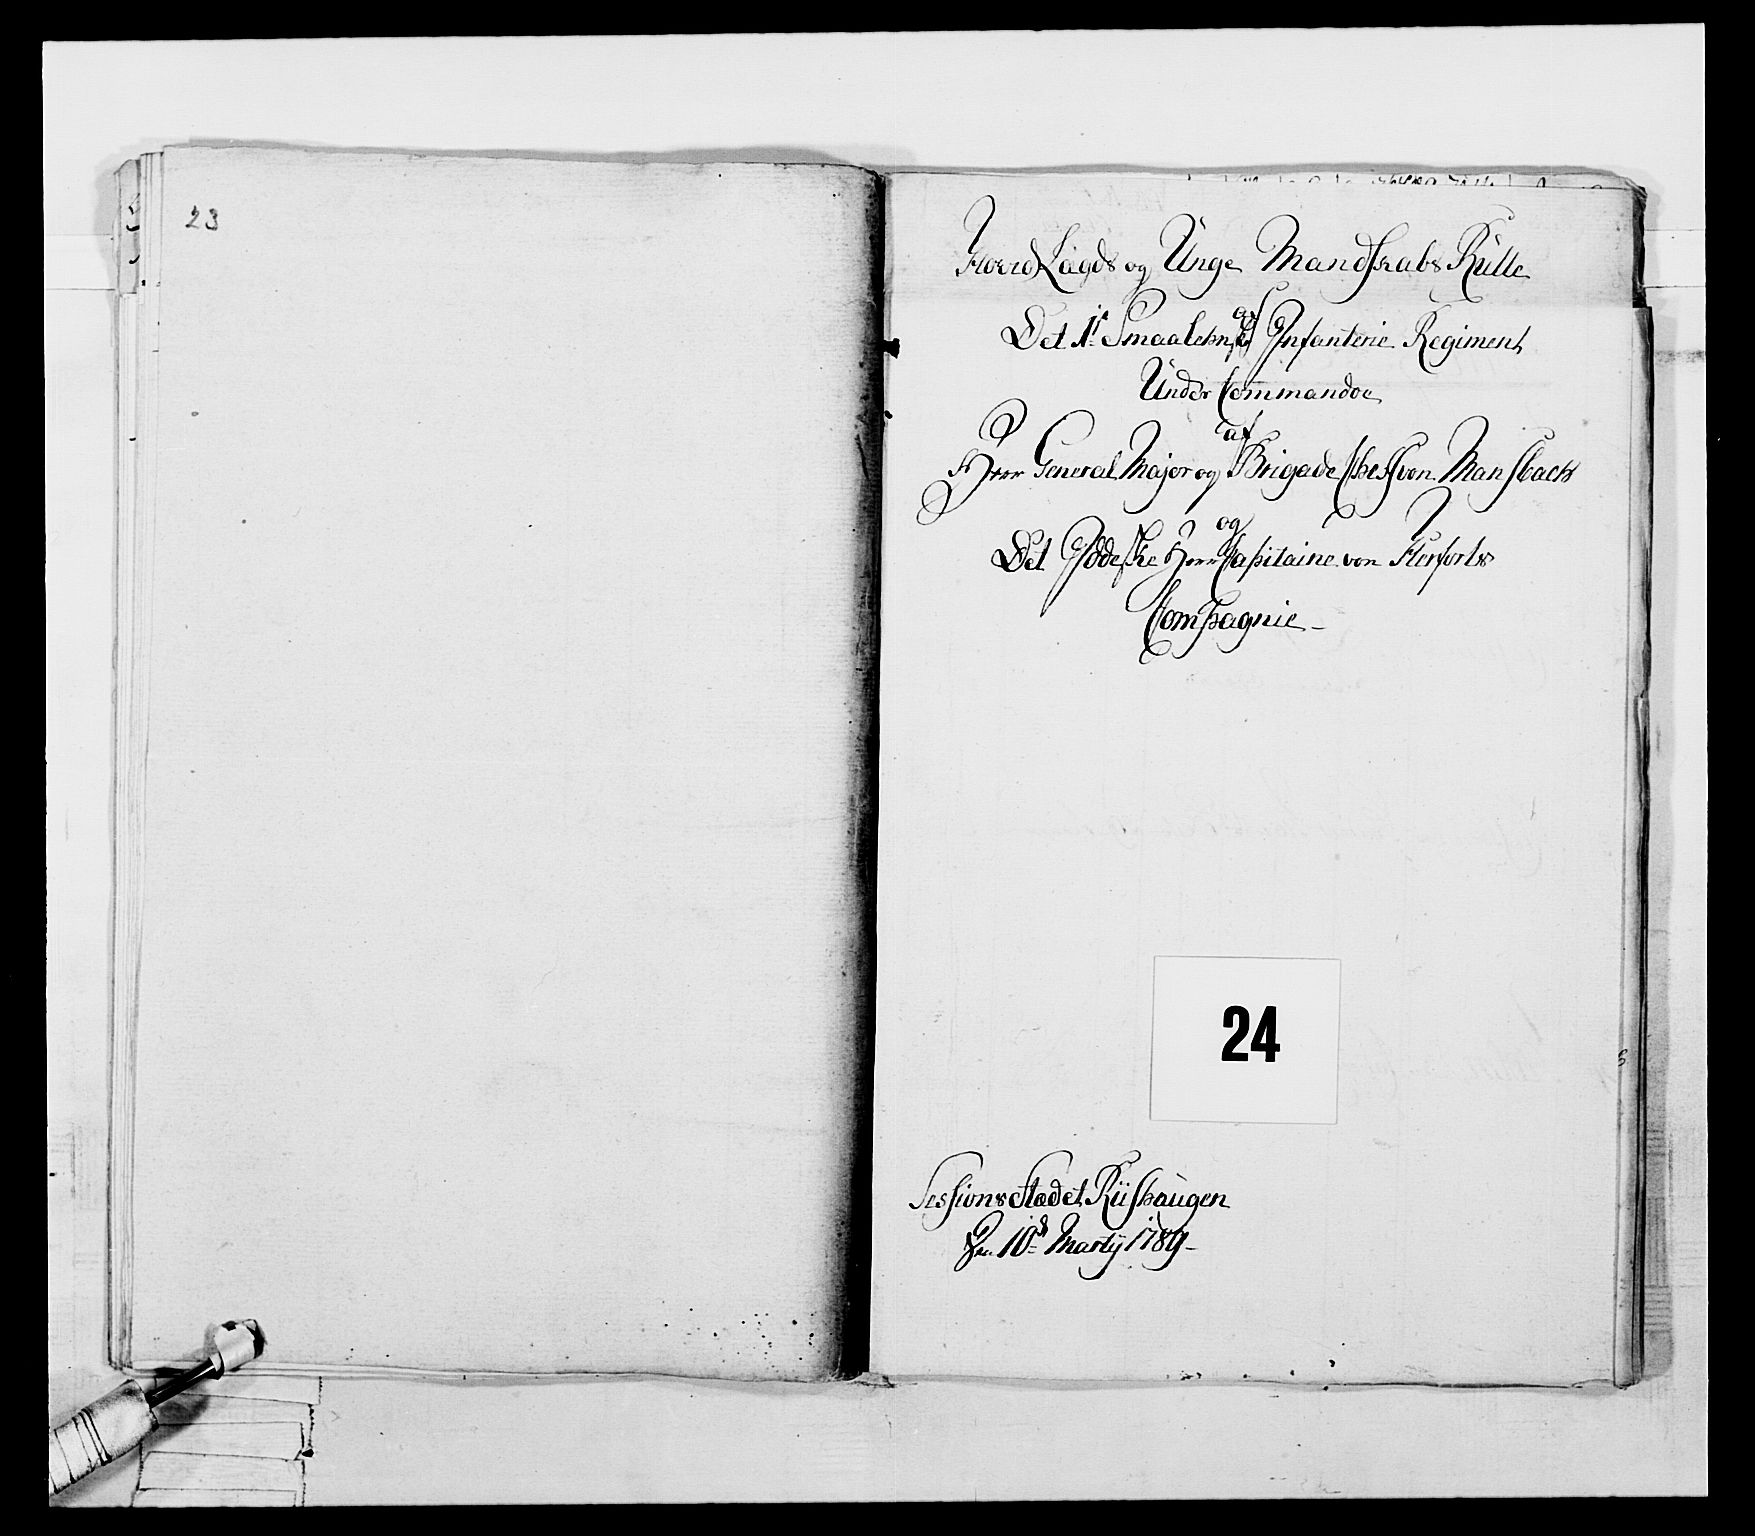 23
Hoved Lægds og Unge Mandskabs Rulle
af
Det 1ste Smaalehnske Infanterie Regiment
Under Commandoe
af
Herr General Major og Brigade Chef von Mansbach
og
Det Gjödeske Herr Capitaine von Herforts
Compagnie
24
Sessions Stædet Riishaugen
den 10de Marty 1789